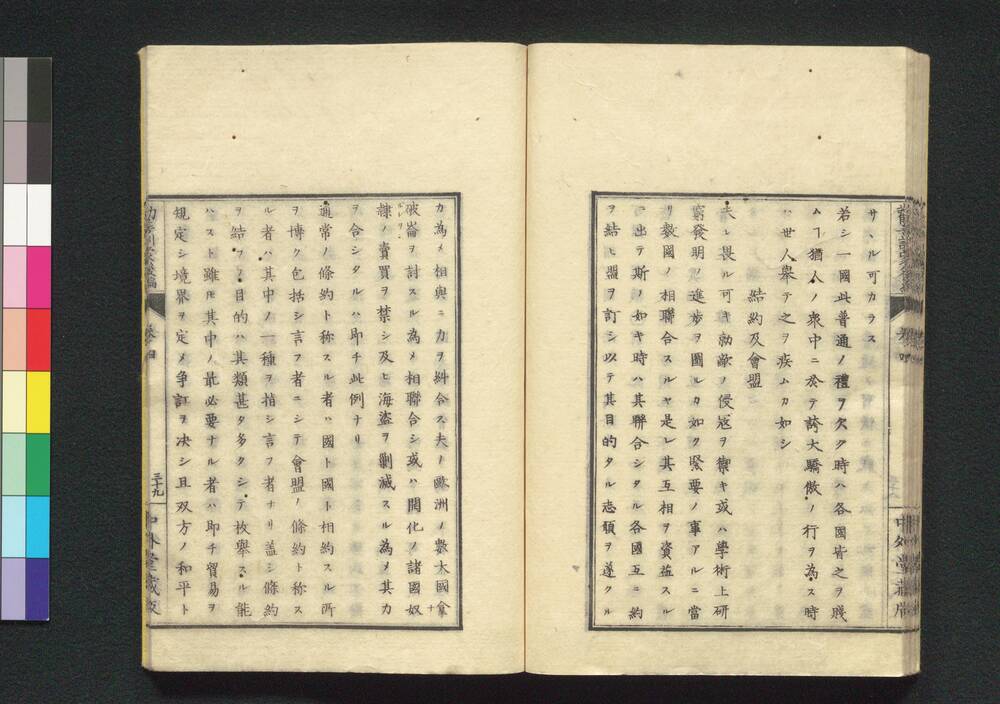 サヽル可カラス
若シ一國此普通ノ禮ヲ欠ク時ハ各國皆之ヲ賤
ムヿ猶人ノ衆中ニ於テ誇大驕傲ノ行ヲ為ス時
ハ世人舉テ之ヲ疾ムカ如シ
結約及會盟
夫レ畏ル可キ勍敵ノ侵寇ヲ禦キ或ハ學術上研
窮發明ノ進歩ヲ圖ルカ如ク緊要ノ事アルニ當
リ數國ノ相聯合スルヤ是レ其互相ヲ資益スル
ニ出テ斯ノ如キ時ハ其聯合シタル各國互ニ約
ヲ結ヒ盟ヲ訂シ以テ其目的タル志願ヲ遂クル
カ為メ相與ニ力ヲ糾合ス夫ノ歐洲ノ數大國拿
破崙ヲ討スル為メ相聯合シ或ハ開化ノ諸國奴
隷ノ賣買ヲ禁シ及ヒ海盜ヲ剿滅スル為メ其力
ヲ合シタルハ即チ此例ナリ
通常ノ條約ト称スル者ハ國ト國ト相約スル所
ヲ博ク包括シ言フ者ニシテ會盟ノ條約ト称ス
ル者ハ其中ノ一種ヲ指シ言フ者ナリ盖シ條約
ヲ結フノ目的ハ其類甚タ多タシテ枚舉スル能
ハスト雖モ其中ノ最必要ナル者ハ即チ貿易ヲ
規定シ境界ヲ定メ争訌ヲ决シ且双方ノ和平ト
三十九
中外堂藏版